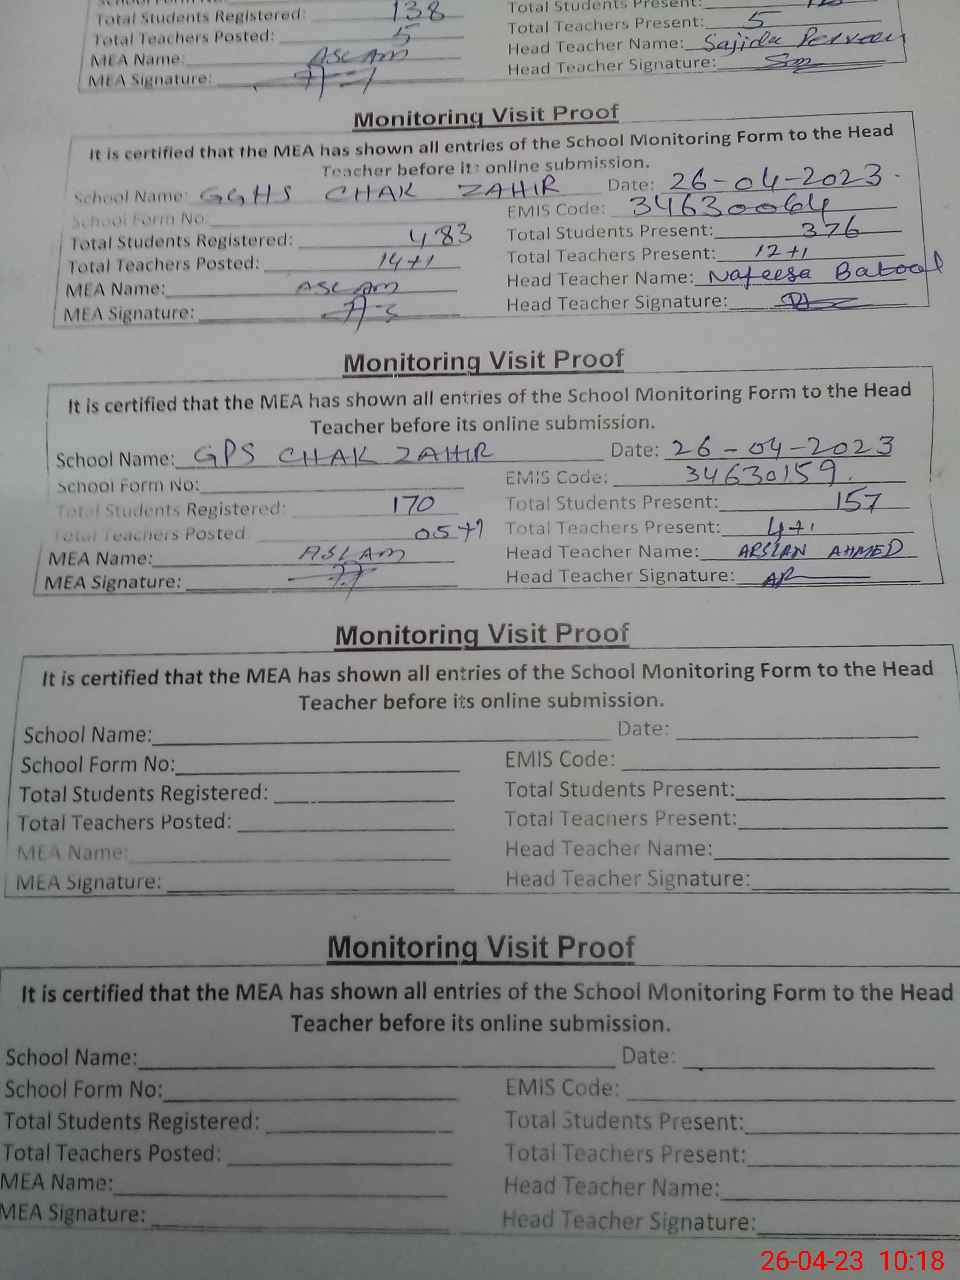 Total Students Registered: 138 Total Students Present:
Total Teachers Posted: 5 Total Teachers Present: 5
MEA Name: ASLAM Head Teacher Name: Sajida Perveen
MEA Signature: Head Teacher Signature:
Monitoring Visit Proof
It is certified that the MEA has shown all entries of the School Monitoring Form to the Head
Teacher before its online submission.
School Name: GGHS CHAK ZAHIR Date: 26-04-2023
School Form No: EMIS Code: 34630064
Total Students Registered: 483 Total Students Present: 376
Total Teachers Posted: 14+1 Total Teachers Present: 12+1
MEA Name: ASLAM Head Teacher Name: Nafeesa Batool
MEA Signature: Head Teacher Signature:
Monitoring Visit Proof
It is certified that the MEA has shown all entries of the School Monitoring Form to the Head
Teacher before its online submission.
School Name: GPS CHAK ZAHIR Date: 26-04-2023
School Form No: EMIS Code: 34630159
Total Students Registered: 170 Total Students Present: 157
Total Teachers Posted: 05+1 Total Teachers Present: 4+1
MEA Name: ASLAM Head Teacher Name: ARSLAN AHMED
MEA Signature: Head Teacher Signature: AR
Monitoring Visit Proof
It is certified that the MEA has shown all entries of the School Monitoring Form to the Head
Teacher before its online submission.
School Name: Date:
School Form No: EMIS Code:
Total Students Registered: Total Students Present:
Total Teachers Posted: Total Teachers Present:
MEA Name: Head Teacher Name:
MEA Signature: Head Teacher Signature:
Monitoring Visit Proof
It is certified that the MEA has shown all entries of the School Monitoring Form to the Head
Teacher before its online submission.
School Name: Date:
School Form No: EMIS Code:
Total Students Registered: Total Students Present:
Total Teachers Posted: Total Teachers Present:
MEA Name: Head Teacher Name:
MEA Signature: Head Teacher Signature:
26-04-23 10:18